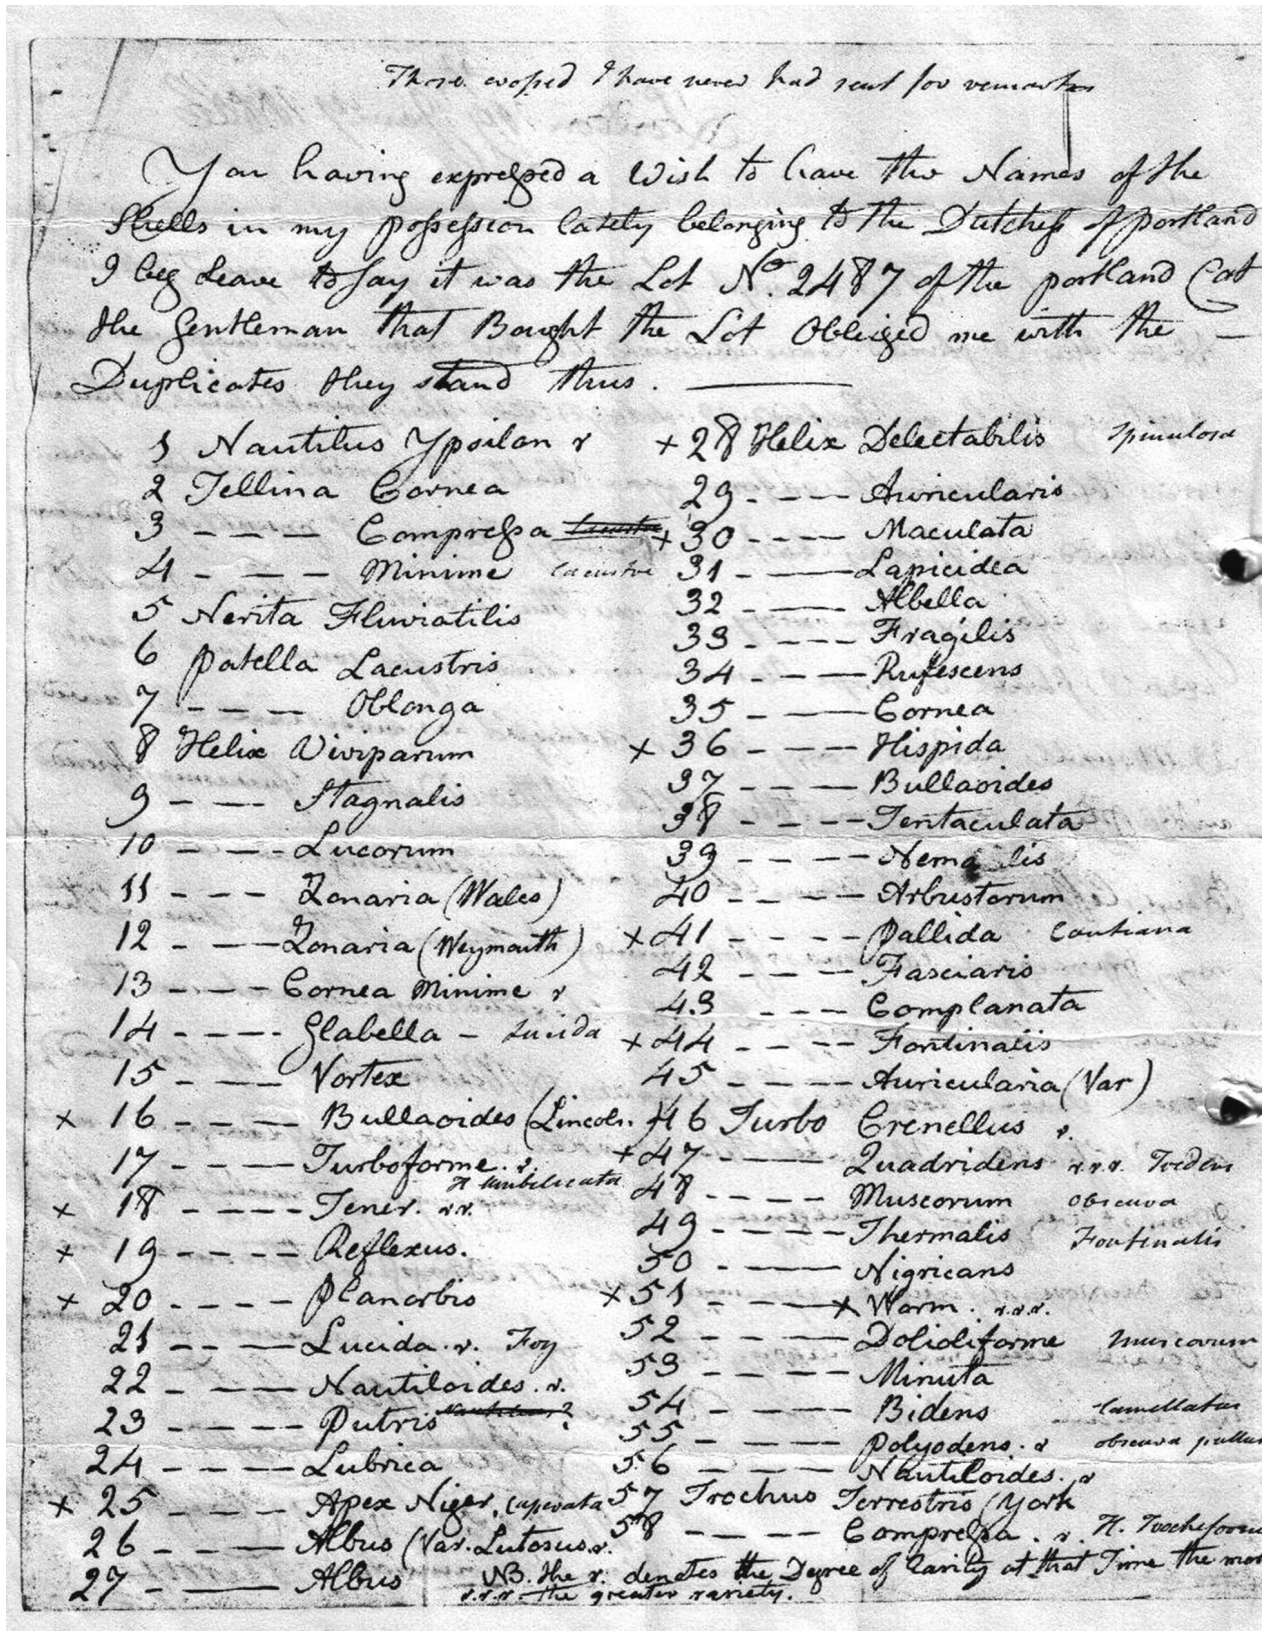 Those crossed I have never had sent for remarks
You having expressed a Wish to have the Names of the
Shells in my possession lately belonging to the Dutchess of portland
I beg Leave to say it was the Lot No. 2487 of the portland Cat
the Gentleman that Bought the Lot Obliged me with the —
Duplicates they stand thus. ———
1 Nautilus Ypsilon r
2 Tellina Cornea
3 - - - - Compressa
4 - - - Minime lacustre
5 Nerita Fluviatilis
6 Patella Lacustris
7 - - - - Oblonga
8 Helix Viviparum
9 - - - Stagnalis
10 - - - - Lucorum
11 - - - Zonaria (Wales)
12 - - - Zonaria (Weymouth)
13 - - - - Cornea Minime r
14 - - - - Glabella - Lucida
15 - - - - Vortex
x 16 - - - - Bullaoides (Lincoln.)
17 - - - - Turboforme. r.
H umbilicata
x 18 - - - - - Tener. r.r.
x 19 - - - - - Reflexus.
x 20 - - - - - Planorbis
21 - - - - Lucida. r. Foy
22 - - - - Nautiloides. r.
23 - - - - - Putris
24 - - - - Lubrica
x 25 - - - - Apex Niger.
26 - - - - Albus (Var. Lutosus. r.
27 - - - Albus
x 28 Helix Delectabilis Spinulosa
29 - - - - Auricularis
x 30 - - - - Maculata
31 - - - Lapicidea
32 - - - Albella
33 - - - - Fragilis
34 - - - - Rufescens
35 - - - Cornea
x 36 - - - - Hispida
37 - - - - Bullaoides
38 - - - - Tentaculata
39 - - - - Nema lis
40 - - - - Arbustorum
x 41 - - - - Pallida Cantiana
42 - - - - Fasciaris
43 - - - Complanata
x 44 - - - - Fontinalis
45 - - - - Auricularia (Var)
46 Turbo Crenellus r.
x 47 - - - Quadridens r.r.r. Tridens
48 - - - - Muscorum obscura
49 - - - - Thermalis Fontinalis
50 - - - Nigricans
x 51 - - - x Worm. r.r.r.
52 - - - - Dolioliforme muscorum
53 - - - - Minuta
54 - - - - Bidens lamellatus
55 - - - - Polyodens. r obscura
56 - - - Nautiloides. r
57 Trochus Terrestris (York
58 - - - - Compressa. r H.
NB. the r. denotes the Degree of rarity at that Time the mor
r.r.r. the greater rariety.